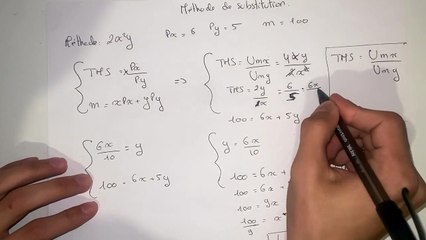 Méthode de substitution.
Méthode: 2x²y Px = 6 Py = 5 m = 100
TMS = Px/Py
m = xPx + yPy
=>
TMS = Umx/Umy = 4xy/2x²
TMS = 2y/x = 6/5 = 6x
100 = 6x + 5y
TMS = Umx/Umy
6x/10 = y
100 = 6x + 5y
y = 6x/10
100 = 6x +
100 = 6x +
100 = 9x
100/9 = x